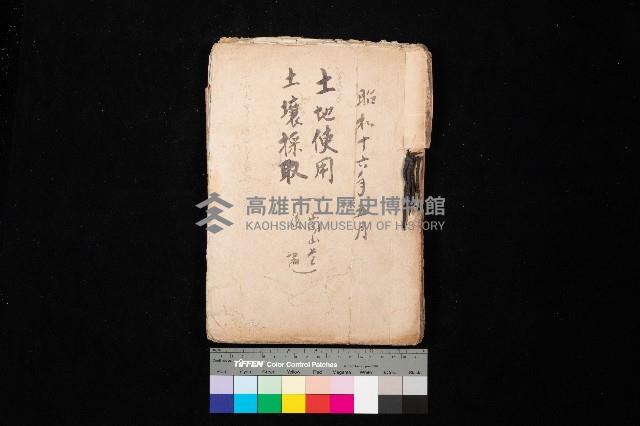 昭和十六年五月
土地使用
土壤採取
高雄市立歷史博物館
KAOHSIUNG MUSEUM OF HISTORY
TIFFEN Color Control Patches
Yellow Red Magenta White
Black